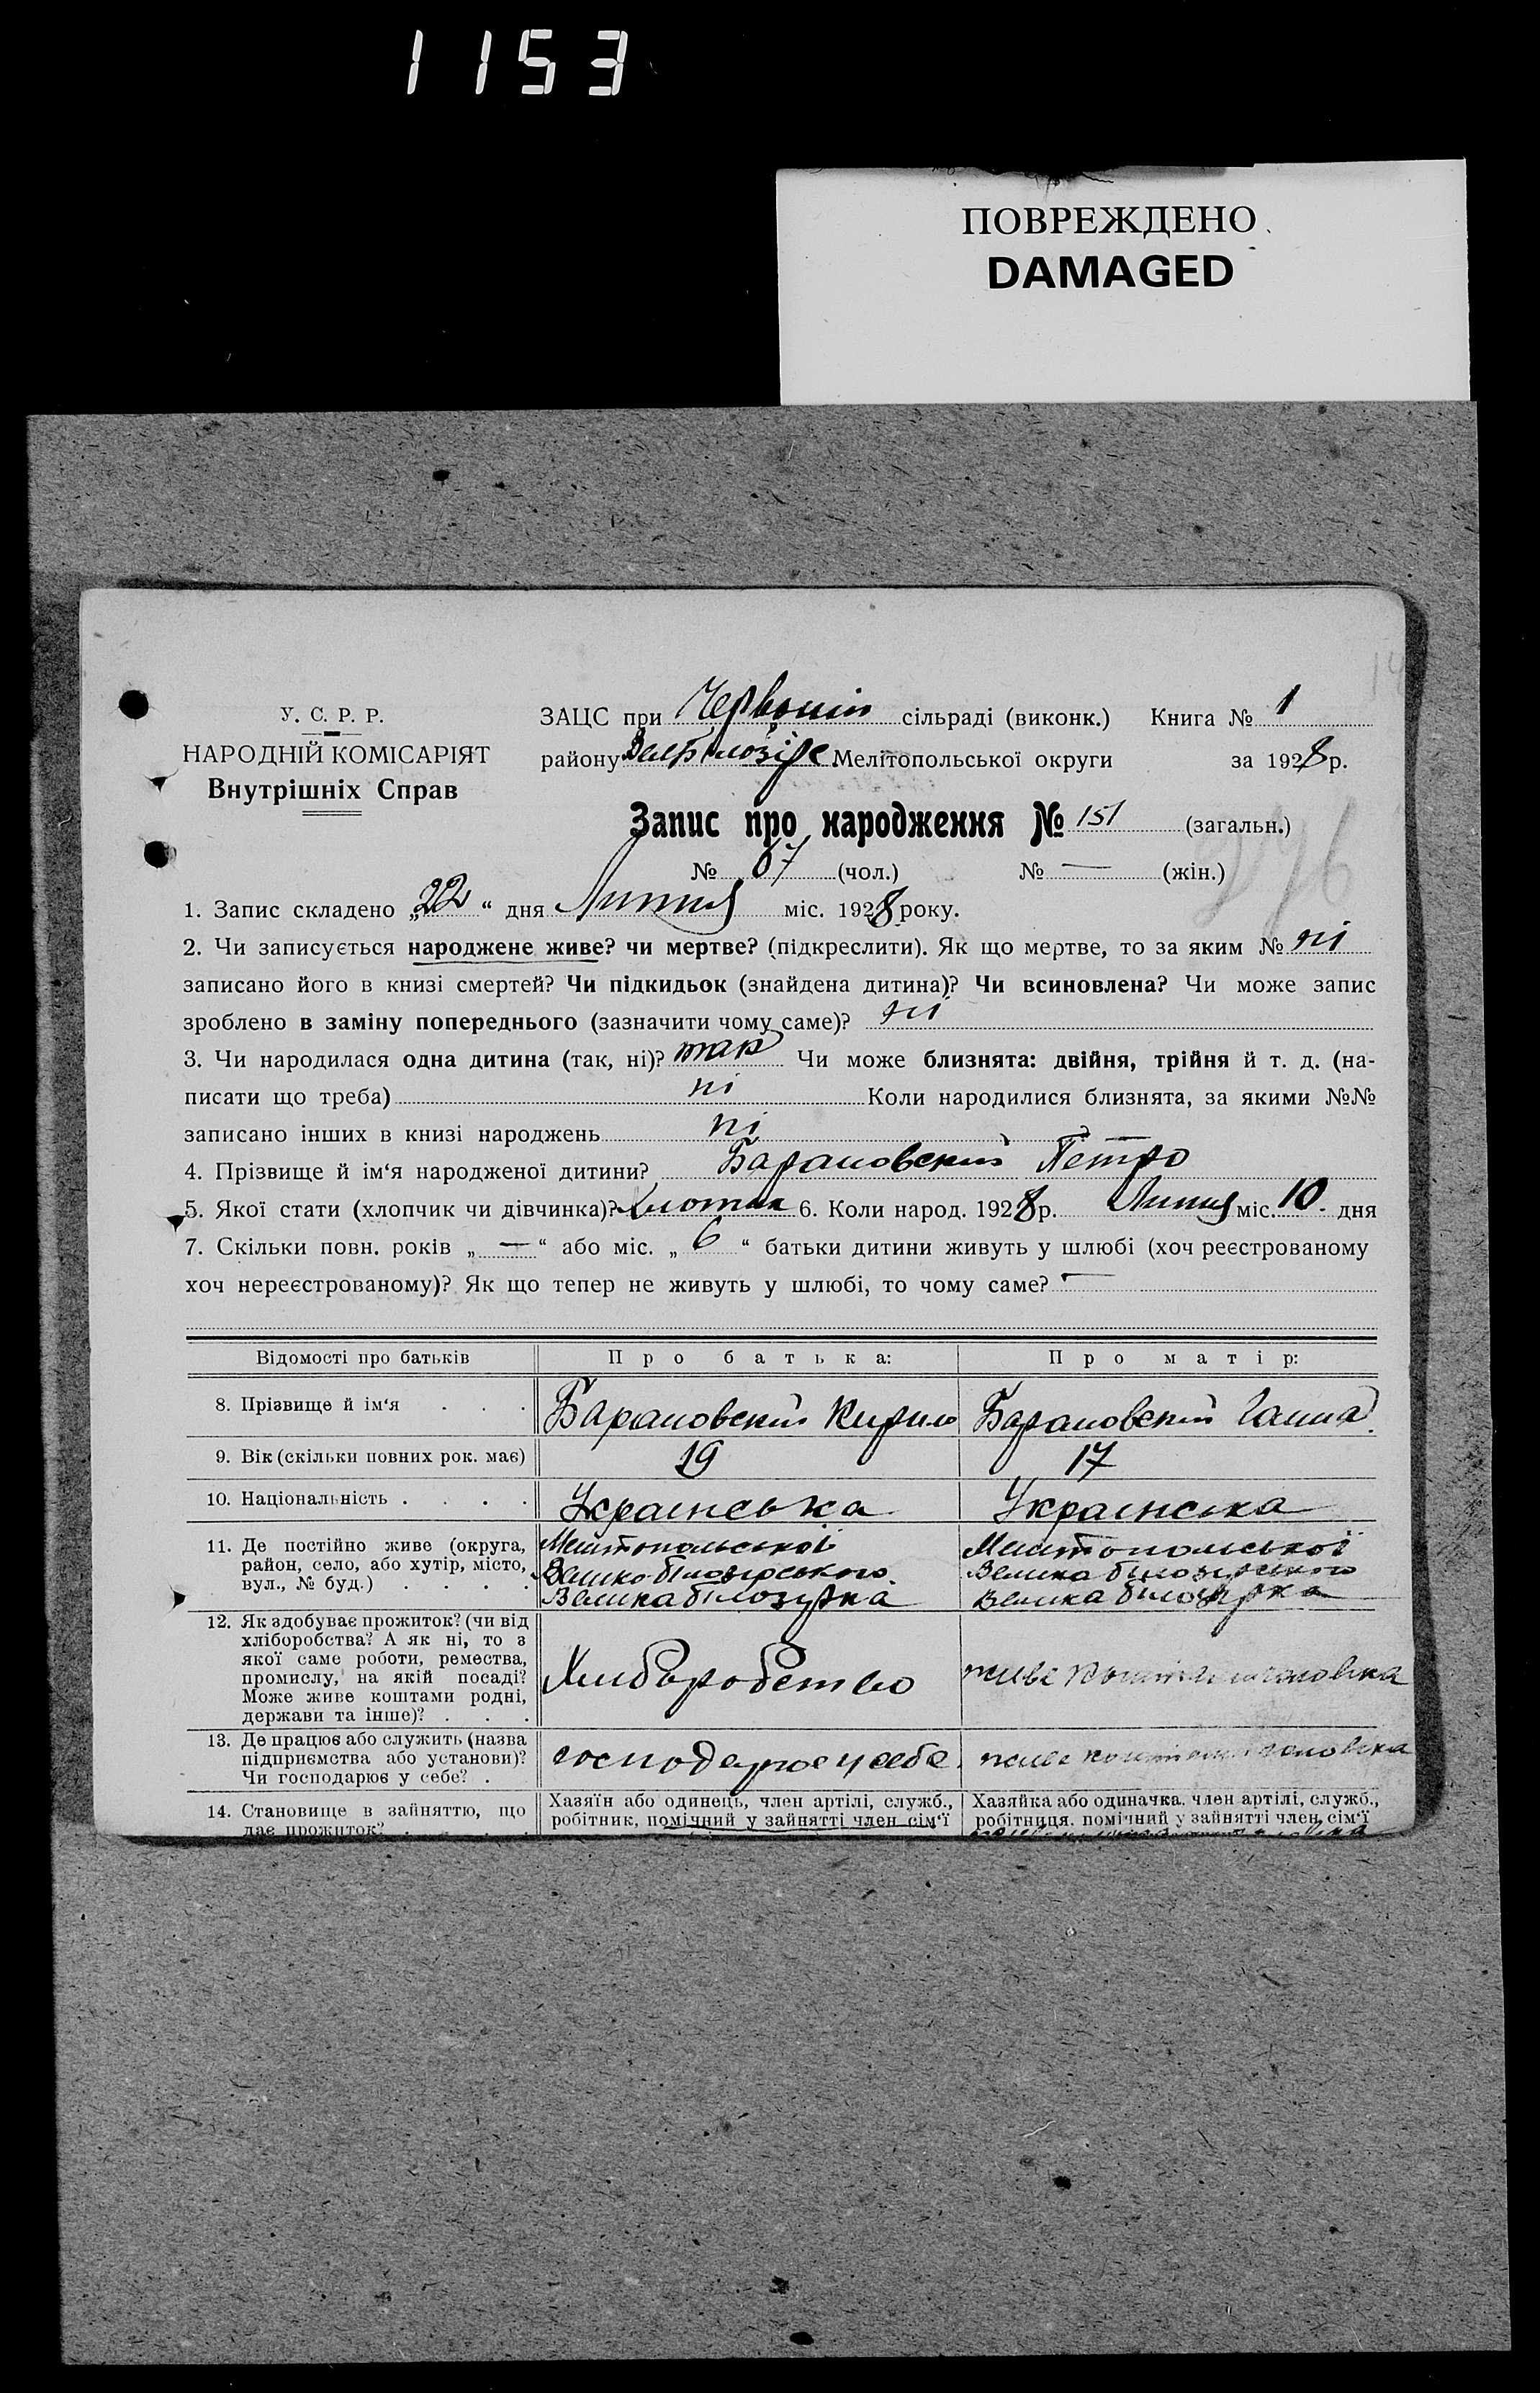 1153
ПОВРЕЖДЕНО
DAMAGED
У. С. Р. Р.
НАРОДНІЙ КОМІСАРІЯТ
Внутрішніх Справ
ЗАЦС при Червоній сільраді (виконк.) Книга № 1
району Мелітопольської округи за 1928 р.
Запис про народження № 151 (загальн.)
276
№ 67 (чол.) № — (жін.)
1. Запис складено „22“ дня Липня міс. 1928 року.
2. Чи записується народжене живе? чи мертве? (підкреслити). Як що мертве, то за яким № ні
записано його в книзі смертей? Чи підкидьок (знайдена дитина)? Чи всиновлена? Чи може запис
зроблено в заміну попереднього (зазначити чому саме)? ні
3. Чи народилася одна дитина (так, ні)? так Чи може близнята: двійня, трійня й т. д. (на-
писати що треба) ні Коли народилися близнята, за якими №№
записано інших в книзі народжень ні
4. Прізвище й ім‘я народженої дитини? Барановский Петро
5. Якої стати (хлопчик чи дівчинка)? Хлопчик 6. Коли народ. 1928 р. Липня міс. 10 дня
7. Скільки повн. років „—“ або міс. „6“ батьки дитини живуть у шлюбі (хоч реєстрованому
хоч нереєстрованому)? Як що тепер не живуть у шлюбі, то чому саме? —
Відомості про батьків Про батька: Про матір:
8. Прізвище й ім‘я . . . Барановский Кирило Барановский Ганна
9. Вік (скільки повних рок. має) 19 17
10. Національність . . . . Украінська Украінска
11. Де постійно живе (округа, Мелітопольскоі Мелітопольскоі
район, село, або хутір, місто, Велико білозірського Велика білозирського
вул., № буд.) . . . . Велика білозурка Велика білозурка
12. Як здобуває прожиток? (чи від
хліборобства? А як ні, то з
якої саме роботи, ремества,
промислу, на якій посаді? Хлиборобство живе коштами чоловика
Може живе коштами родні,
держави та інше)? . . .
13. Де працює або служить (назва
підприємства або установи)? господарює у себе живе коштами чоловика
Чи господарює у себе? .
14. Становище в зайняттю, що Хазяїн або одинець, член артілі, служб., Хазяйка або одиначка. член артілі, служб.,
дає прожиток? . . . . робітник, помічний у зайнятті член сім‘ї робітниця. помічний у зайнятті член сім‘ї